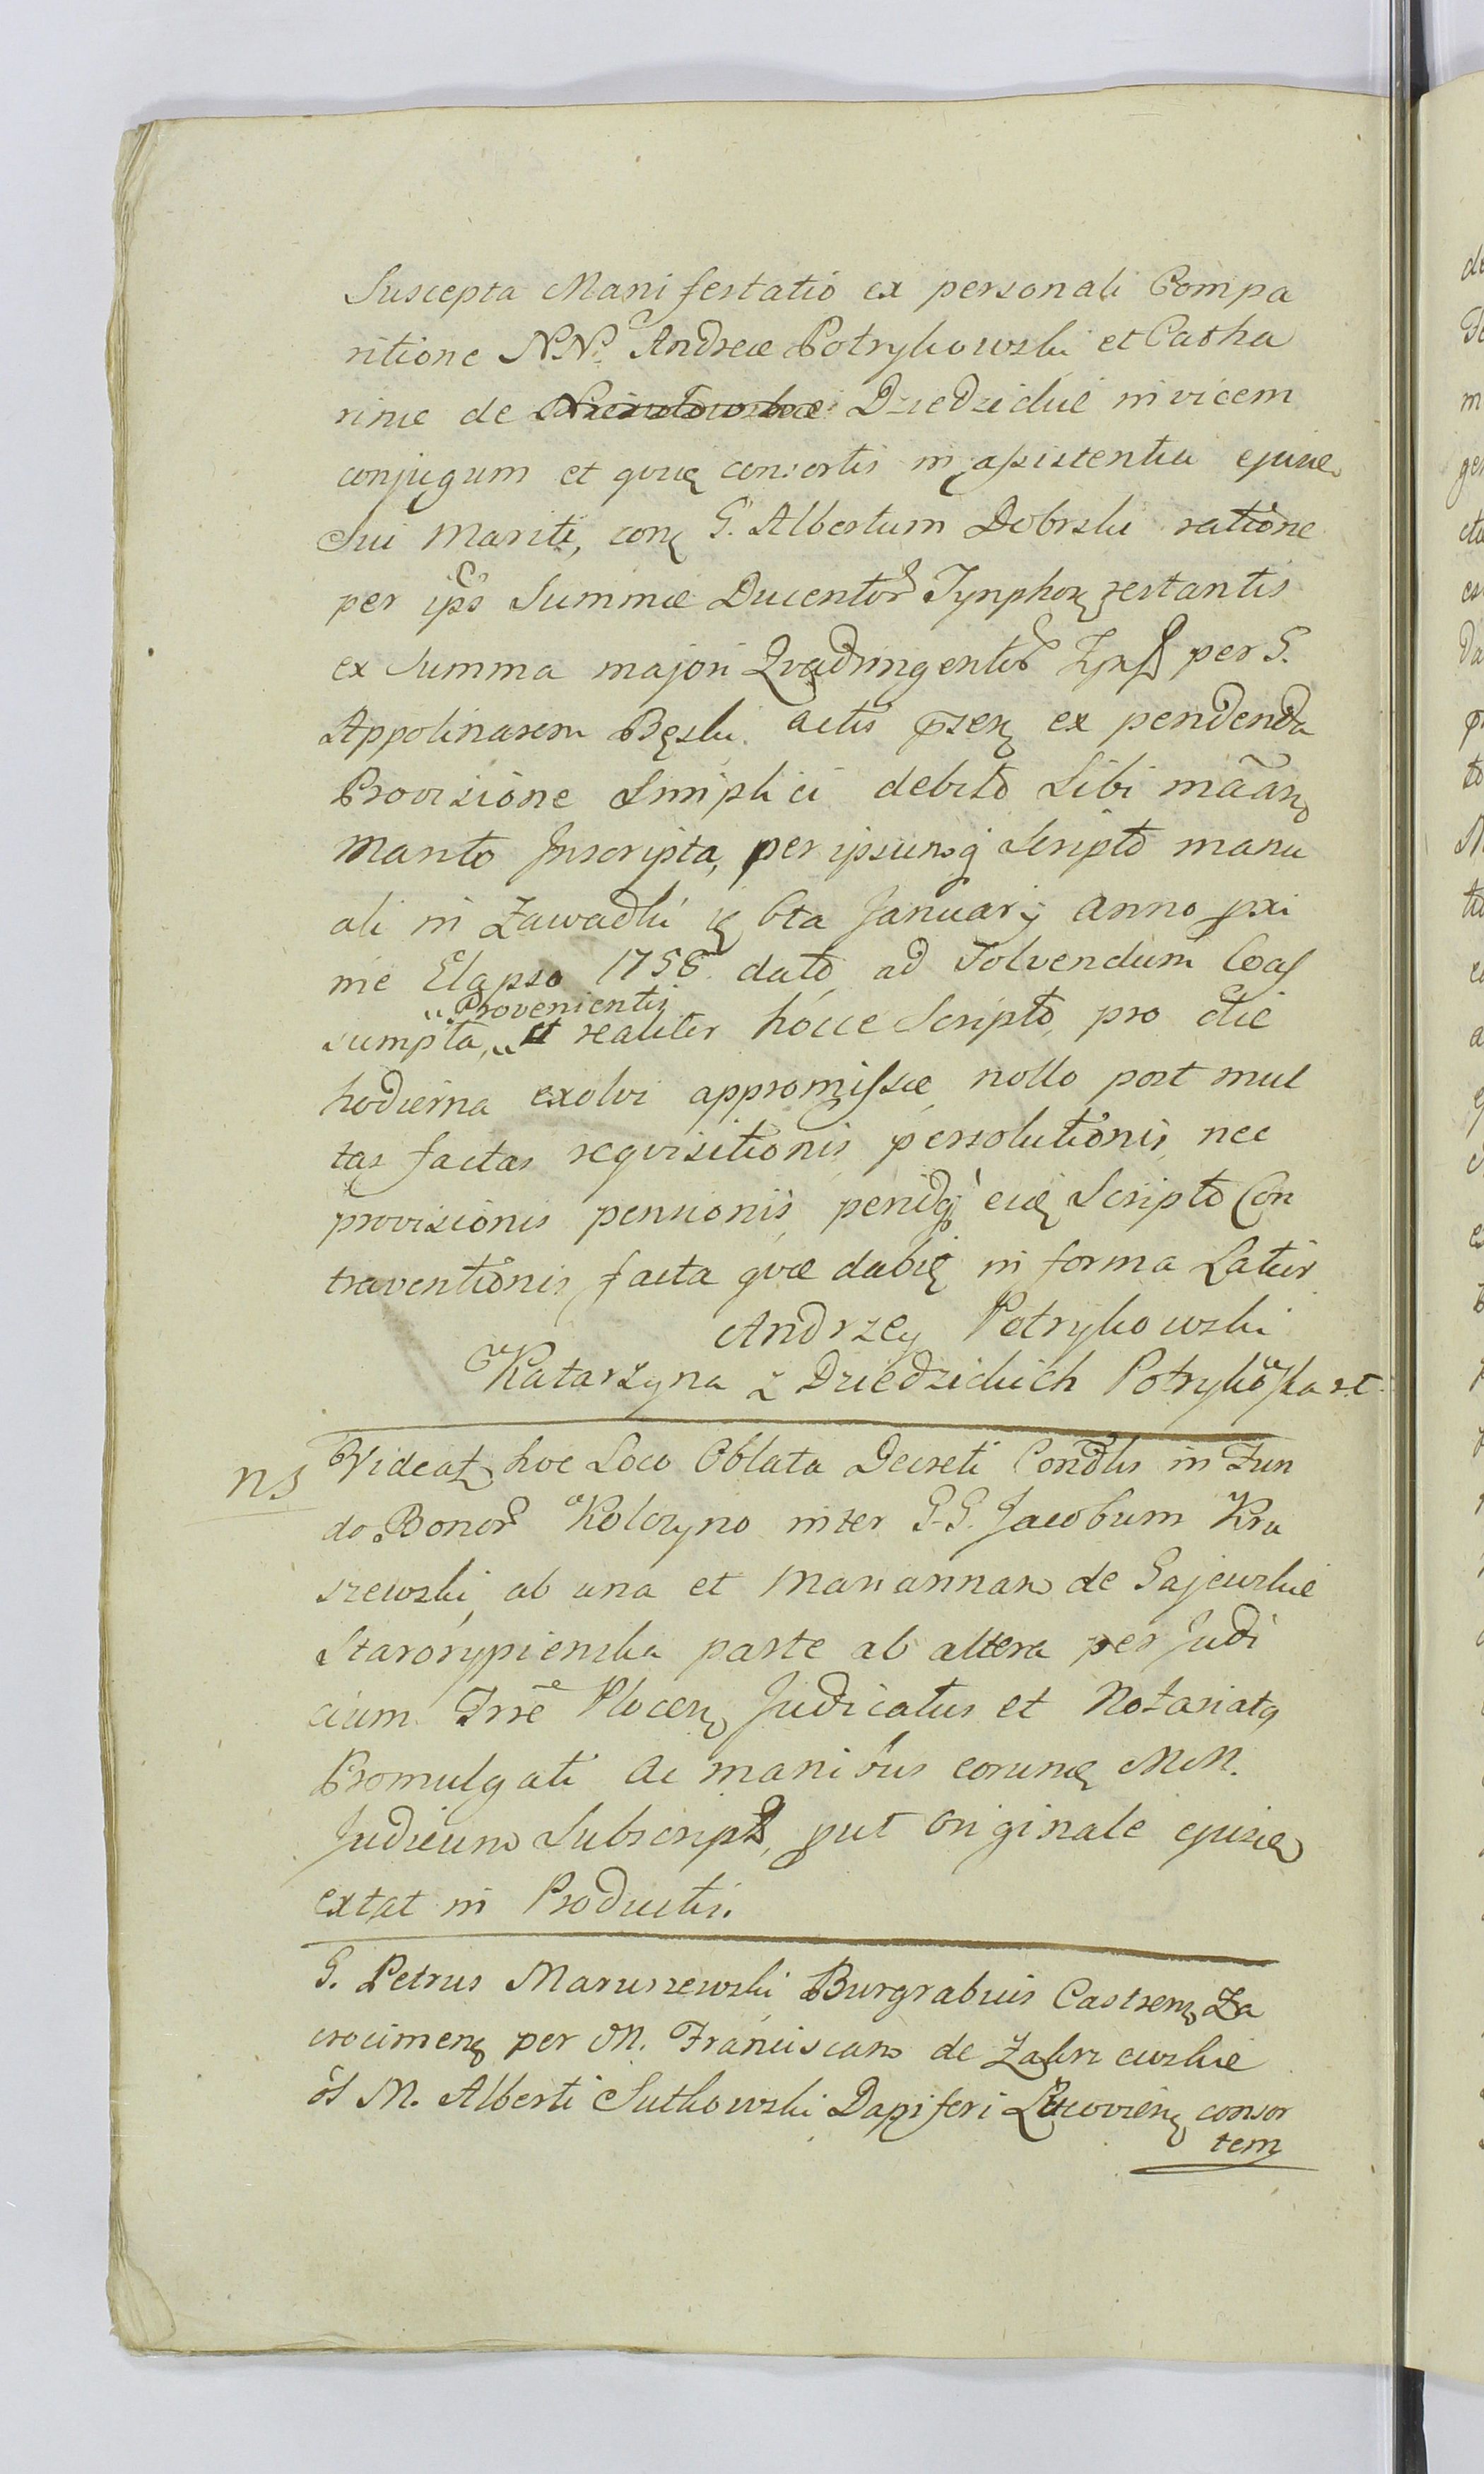 Suscepta Manifestatio ex personali Compa
ritione NN. Andreæ Potrykowski et Catha
rinæ de Dziedzickie invicem
conjugum et qvæ consortis in assistentia ejusd
Sui Mariti, con G. Albertum Dobrski ratione
per ipso Summæ Ducentor Tynphor restantis
ex Summa majori Qvadringentor Tynf per G.
Appolinarem Bęski actis præsen ex pendenda
Provisione Simplici debito Sibi mãan
Manto Inscripta, per ipsumq Scripto manu
ali in Zawadki 6ta Januarij anno pxi
me Elapso 1758 dato ad Solvendum Coas
Provenientis
sumpta, et realiter hocce Scripto pro die
hodierna exolvi appromissæ nollo post mul
tas factas reqvisitionis persolutionis nec
provisionis pensionis, penidq eid Scripto Con
traventionis facta qvæ dabit in forma Latior
Andrzey Potrykowski
Katarzyna z Dziedzickich Potrykoska
ns Videat hoc Loco Oblata Decreti Condlis in Fun
do Bonor Kolczyno inter G.G. Jacobum Kra
szewski ab una et Mariannam de Gajewskie
Starorypienska parte ab altera per Judi
cium Trre Plocen Judicatus et Notariatq
Promulgati ac manibus eorund MM.
Judicum Subscript, put originale ejusd
extat in Productis.
G. Petrus Maruszewski Burgrabius Castren Za
crocimen per M. Franciscam de Zakrzewskie
ol M. Alberti Sutkowski Dapiferi Łucovien consor
tem